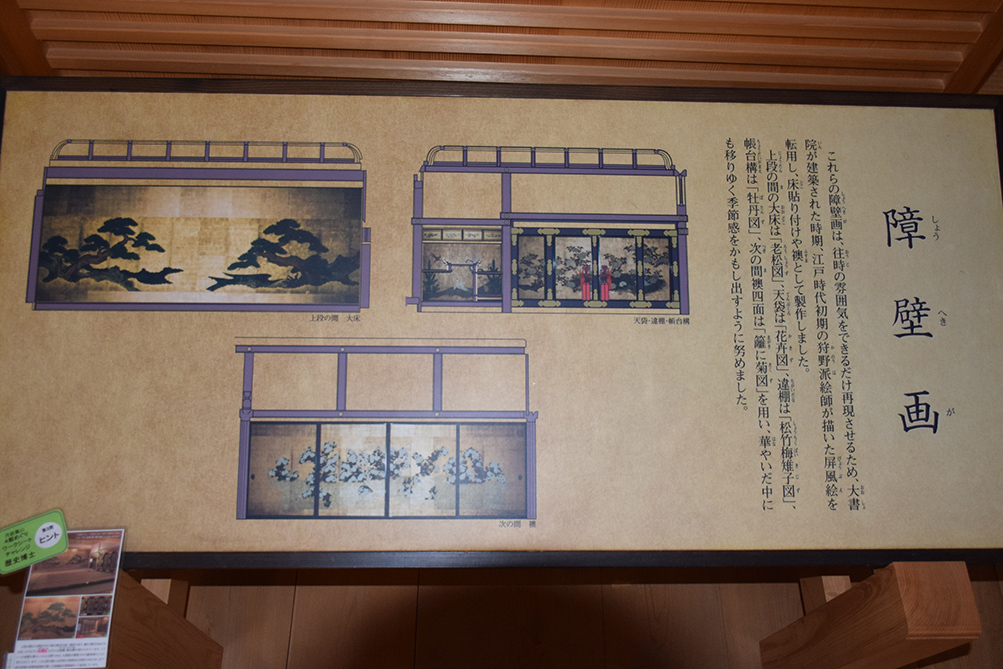 障壁画
しょう
へき
が
これらの障壁画は、往時の雰囲気をできるだけ再現させるため、大書
院が建築された時期、江戸時代初期の狩野派絵師が描いた屏風絵を
転用し、床貼り付けや襖として製作しました。
上段の間の大床は「老松図」、天袋は「花卉図」、違棚は「松竹梅雉子図」、
帳台構は「牡丹図」、次の間襖四面は「籬に菊図」を用い、華やいだ中に
も移りゆく季節感をかもし出すように努めました。
上段の間 大床
天袋・違棚・帳台構
次の間 襖
ヒント
ワークシート
チャレンジ
歴史博士